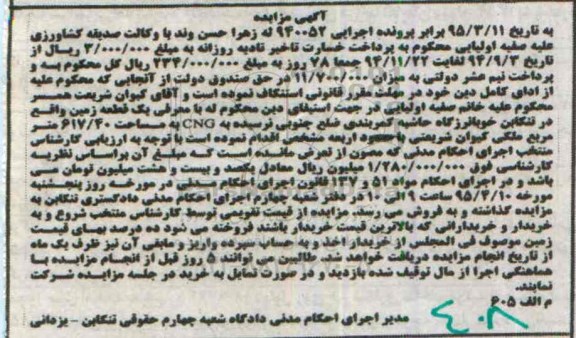 آگهی مزایده
به تاریخ ۹۵/۳/۱۱ برابر پرونده اجرایی ۹۴۰۰۵۲ له زهرا حسن وند با وکالت صدیقه کشاورزی
علیه صفیه اولیایی محکوم به پرداخت خسارت تاخیر تادیه روزانه به مبلغ ۳/۰۰۰/۰۰۰ ریال از
تاریخ ۹۴/۹/۳ لغایت ۹۴/۱۱/۲۲ جمعا ۷۸ روز به مبلغ ۲۳۴/۰۰۰/۰۰۰ ریال کل محکوم به و
پرداخت نیم عشر دولتی به میزان ۱۱/۷۰۰/۰۰۰ در حق صندوق دولت از آنجایی که محکوم علیه
از ادای کامل دین خود در مهلت مقرر قانونی استنکاف نموده است و آقای کیوان شریعت همسر
محکوم علیه خانم صفیه اولیایی در جهت استیفای دین محکوم له با معرفی یک قطعه زمین واقع
در تنکابن خوبانرزگاه حاشیه کمربندی ضلع جنوبی نرسیده به CNG به مساحت ۶۱۷/۴۰ متر
مربع ملکی کیوان شریعتی با حدود اربعه مشخص اقدام نموده است با توجه به ارزیابی کارشناس
منتخب اجرای احکام مدنی که مصون از تعرض مانده است که مبلغ آن براساس نظریه
کارشناسی فوق ۱/۲۸۰/۰۰۰/۰۰۰ میلیون ریال معادل یکصد و بیست و هشت میلیون تومان می
باشد و در اجرای احکام مواد ۵۱ و ۱۳۷ قانون اجرای احکام مدنی در مورخه روز پنجشنبه
مورخه ۹۵/۴/۱۰ ساعت ۹ الی ۱۰ در دفتر شعبه چهارم اجرای احکام مدنی دادگستری تنکابن به
مزایده گذاشته و به فروش می رسد. مزایده از قیمت تقویمی توسط کارشناس منتخب شروع و به
خریدار و خریدارانی که بالاترین قیمت خریدار باشند فروخته می شود ده درصد بهای قیمت
زمین موصوف فی المجلس از خریدار اخذ و به حساب سپرده واریز و مابقی آن نیز ظرف یک ماه
از تاریخ انجام مزایده دریافت خواهد شد. طالبین می توانند ۵ روز قبل از انجام مزایده با
هماهنگی اجرا از مال توقیف شده بازدید و در صورت تمایل به خرید در جلسه مزایده شرکت
نمایند.
م الف ۶۰۵
مدیر اجرای احکام مدنی دادگاه شعبه چهارم حقوقی تنکابن - یزدانی